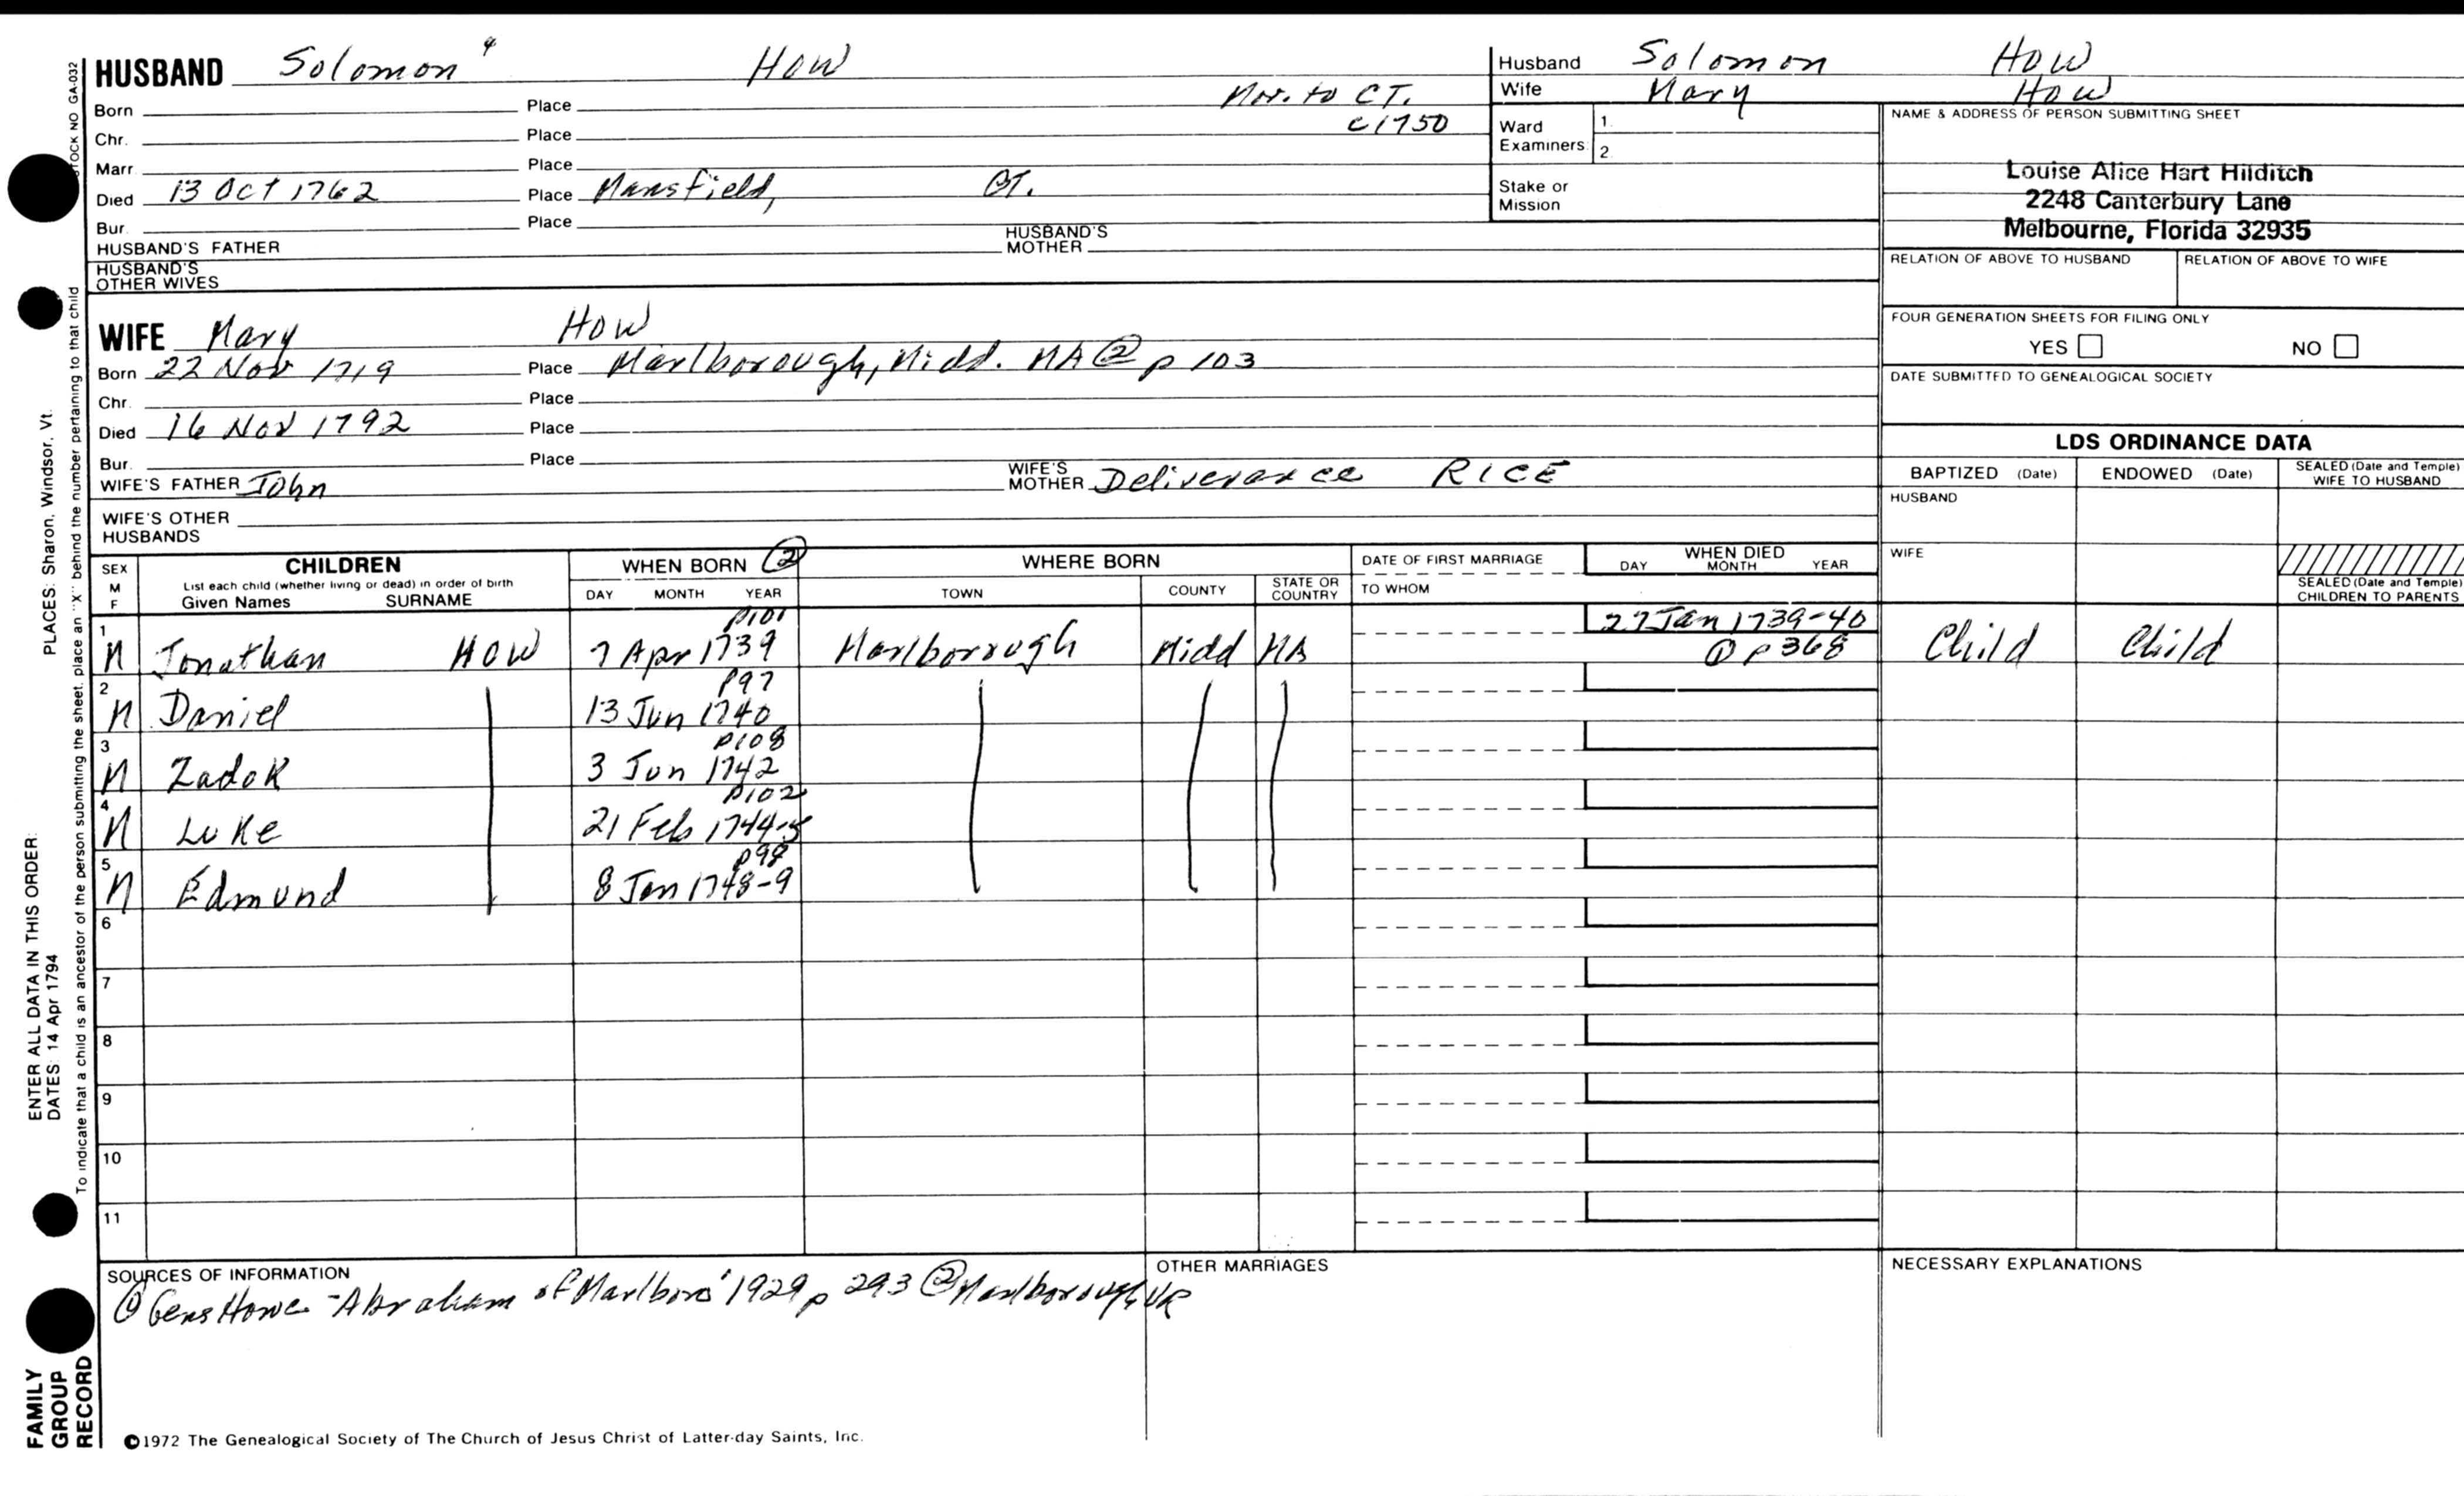 HUSBAND Solomon 4 How
Born Place Mov. to CT.
Chr. Place c1750
Marr. Place
Died 13 Oct 1762 Place Mansfield, CT.
Bur. Place
HUSBAND'S FATHER HUSBAND'S MOTHER
HUSBAND'S OTHER WIVES
Husband Solomon How
Wife Mary How
Ward Examiners 1. 2.
Stake or Mission
NAME & ADDRESS OF PERSON SUBMITTING SHEET
Louise Alice Hart Hilditch
2248 Canterbury Lane
Melbourne, Florida 32935
RELATION OF ABOVE TO HUSBAND RELATION OF ABOVE TO WIFE
FOUR GENERATION SHEETS FOR FILING ONLY
YES NO
DATE SUBMITTED TO GENEALOGICAL SOCIETY
WIFE Mary How
Born 22 Nov 1719 Place Marlborough, Midd. MA ② p 103
Chr. Place
Died 16 Nov 1792 Place
Bur. Place
WIFE'S FATHER John WIFE'S MOTHER Deliverance RICE
WIFE'S OTHER HUSBANDS
LDS ORDINANCE DATA
BAPTIZED (Date) ENDOWED (Date) SEALED (Date and Temple) WIFE TO HUSBAND
HUSBAND
WIFE
SEALED (Date and Temple) CHILDREN TO PARENTS
SEX M F
CHILDREN
List each child (whether living or dead) in order of birth
Given Names SURNAME
WHEN BORN ②
DAY MONTH YEAR
WHERE BORN
TOWN COUNTY STATE OR COUNTRY
DATE OF FIRST MARRIAGE
TO WHOM
WHEN DIED
DAY MONTH YEAR
p101 27 Jan 1739-40
1 M Jonathan HOW 7 Apr 1739 Marlborough Midd MA ① p 368 Child Child
p97
2 M Daniel 13 Jun 1740
p108
3 M Zadok 3 Jun 1742
p102
4 M Luke 21 Feb 1744-5
p98
5 M Edmund 8 Jan 1748-9
6
7
8
9
10
11
SOURCES OF INFORMATION
① Gens Howe - Abraham of Marlboro' 1929 p 293 ② Marlborough VR
OTHER MARRIAGES
NECESSARY EXPLANATIONS
©1972 The Genealogical Society of The Church of Jesus Christ of Latter-day Saints, Inc.
FAMILY GROUP RECORD
ENTER ALL DATA IN THIS ORDER:
DATES: 14 Apr 1794
PLACES: Sharon, Windsor, Vt.
To indicate that a child is an ancestor of the person submitting the sheet, place an "X" behind the number pertaining to that child
STOCK NO GA-032